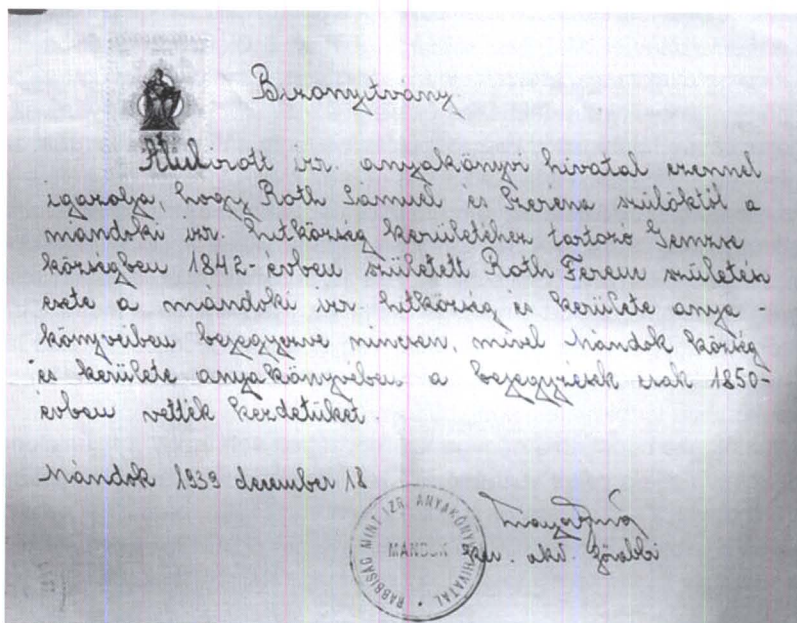 Bizonyitvány.
Alulirott izr. anyakönyvi hivatal ezennel
igazolja, hogy Roth Sámuel és Szeréna szülőktől a
mándoki izr. hitközség kerületéhez tartozó Gemzse
községben 1842-évben született Roth Ferenc születési
esete a mándoki izr. hitközség és kerülete anya-
könyveiben bejegyezve nincsen, mivel Mándok község
és kerülete anyakönyvében a bejegyzések csak 1850-
évben vették kezdetüket.
Mándok 1939 december 18
RABBISÁG MINT IZR. ANYAKÖNYVI HIVATAL
MÁNDOK
ker. akv. főrabbi